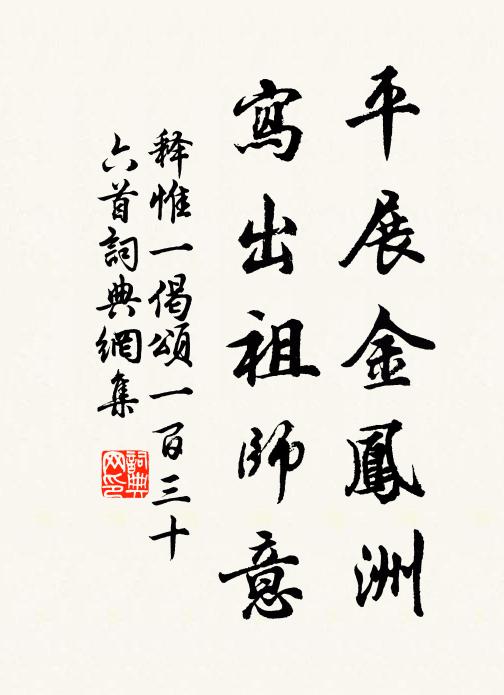 平展金鳳洲
寫出祖師意
释惟一偈頌一百三十
六首詞典網集
詞典
网印